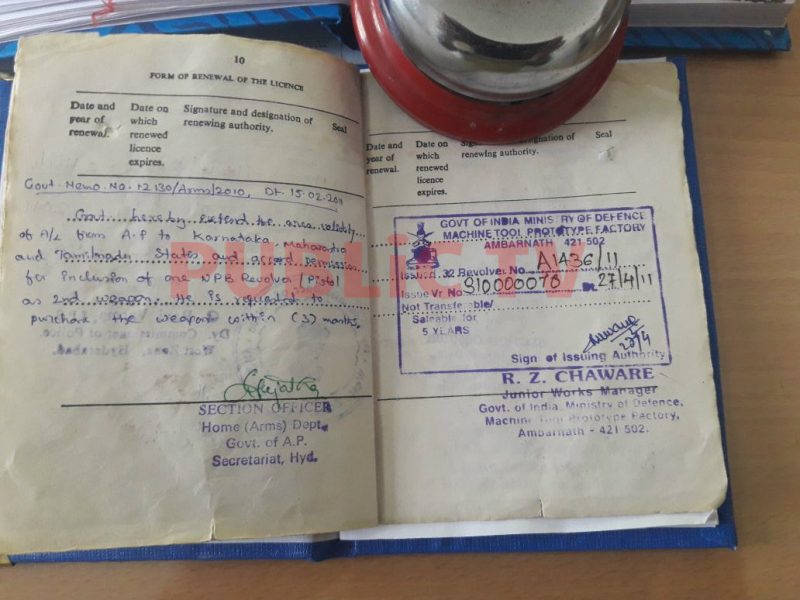 10
FORM OF RENEWAL OF THE LICENCE
Date and year of renewal.
Date on which renewed licence expires.
Signature and designation of renewing authority.
Seal
Govt. Memo. No. 12130/Arms/2010, Dt. 15.02.2011
Govt. hereby extend the area validity
of A/L from A.P to Karnataka, Maharastra
and Tamilnadu States and accord permission
for inclusion of one NPB Revolver / Pistol
as 2nd weapon. He is requested to
purchase the weapon within (3) months.
Dy. Commissioner of Police
West Zone, Hyderabad.
SECTION OFFICER
Home (Arms) Dept.
Govt. of A.P.
Secretariat, Hyd.
Date and year of renewal.
Date on which renewed licence expires.
designation of renewing authority.
Seal
GOVT OF INDIA MINISTRY OF DEFENCE
MACHINE TOOL PROTOTYPE FACTORY
AMBARNATH 421 502
Issued .32 Revolver No. A1436/11
Issue Vr. No. S10000078 Dt. 27/4/11
Not Transferable/
Saleable for
5 YEARS
27/4
Sign of Issuing Authority
R. Z. CHAWARE
Junior Works Manager
Govt. of India, Ministry of Defence,
Machine Tool Prototype Factory,
Ambarnath - 421 502.
PUBLiC TV